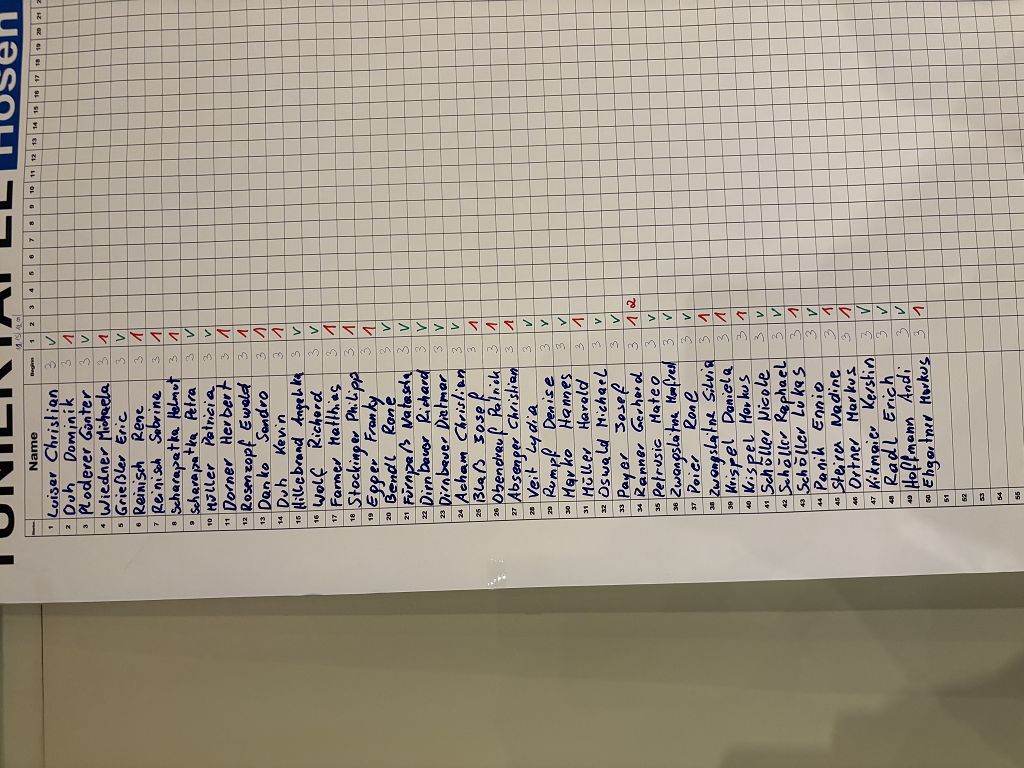 TURNIERTAFEL Hosen
Name Beginn 1 2 3 4 5 6 7 8 9 10 11 12 13 14 15 16 17 18 19 20 21
1 Luiser Christian 3 ✓
2 Duh Dominik 3 1
3 Ploderer Günter 3 ✓
4 Wiedner Michaela 3 1
5 Grießler Eric 3 ✓
6 Reinisch Rene 3 1
7 Reinisch Sabrine 3 1
8 Scharapatka Helmut 3 1
9 Scharapatka Petra 3 ✓
10 Müller Patricia 3 ✓
11 Dorner Herbert 3 1
12 Rosenzopf Ewald 3 1
13 Danko Sandro 3 1
14 Duh Kevin 3 1
15 Hillebrand Angelika 3 ✓
16 Wolf Richard 3 ✓
17 Farmer Matthias 3 1
18 Stockinger Philipp 3 1
19 Egger Franky 3 1
20 Bendl Rene 3 ✓
21 Fürnpaß Natascha 3 ✓
22 Dirnbauer Richard 3 ✓
23 Dirnbauer Dietmar 3 ✓
24 Acham Christian 3 ✓
25 Blaß Josef 3 1
26 Patrick 3 1
27 Absenger Christian 3 1
28 Veit Lydia 3 ✓
29 Rumpf Denise 3 ✓
30 Marko Hannes 3 ✓
31 Müller Harald 3 1
32 Oswald Michael 3 ✓
33 Payer Josef 3 ✓
34 Ranner Gerhard 3 1 2
35 Petrusic Mateo 3 ✓
36 Zwangsleitna Manfred 3 ✓
37 Poier Rene 3 ✓
38 Zwangsleitna Silvia 3 1
39 Krispel Daniela 3 1
40 Krispel Markus 3 1
41 Schöller Nicole 3 ✓
42 Schöller Raphael 3 ✓
43 Schöller Lukas 3 1
44 Penik Ennio 3 ✓
45 Steirer Nadine 3 1
46 Ortner Markus 3 1
47 Kirmaier Kerstin 3 ✓
48 Radl Erich 3 ✓
49 Hoffmann Andi 3 ✓
50 Markus 3 1
51
52
53
54
55